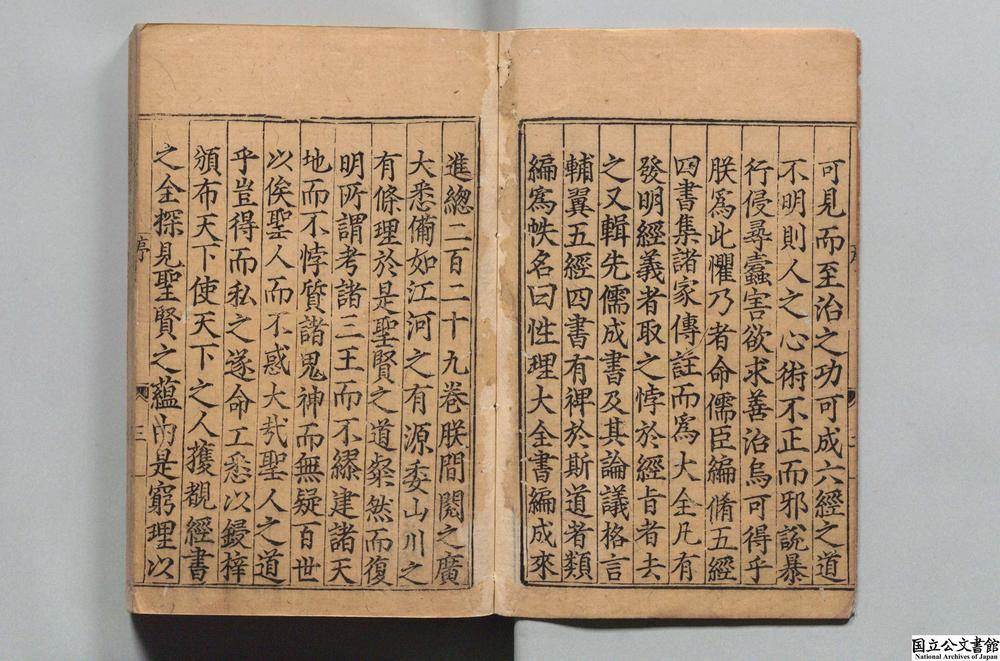 可見而至治之功可成六經之道
不明則人之心術不正而邪說暴
行侵尋蠹害欲求善治烏可得乎
朕爲此懼乃者命儒臣編脩五經
四書集諸家傳註而爲大全凡有
發明經義者取之悖於經旨者去
之又輯先儒成書及其論議格言
輔翼五經四書有裨於斯道者類
編爲帙名曰性理大全書編成來
進緫二百二十九卷朕間閱之廣
大悉備如江河之有源委山川之
有條理於是聖賢之道粲然而復
明所謂考諸三王而不繆建諸天
地而不悖質諸鬼神而無疑百世
以俟聖人而不惑大哉聖人之道
乎豈得而私之遂命工悉以鋟梓
頒布天下使天下之人獲覩經書
之全探見聖賢之蘊由是窮理以
序
三
国立公文書館
National Archives of Japan